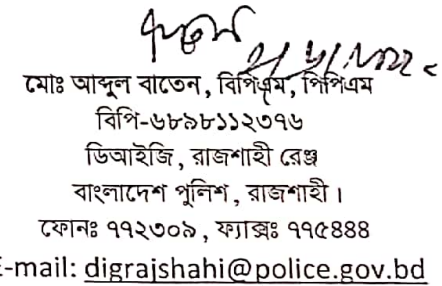 মোঃ আব্দুল বাতেন, বিপিএম, পিপিএম
বিপি-৬৮৯৮১১২৩৭৬
ডিআইজি, রাজশাহী রেঞ্জ
বাংলাদেশ পুলিশ, রাজশাহী।
ফোনঃ ৭৭২৩০৯, ফ্যাক্সঃ ৭৭৫৪৪৪
E-mail: digrajshahi@police.gov.bd